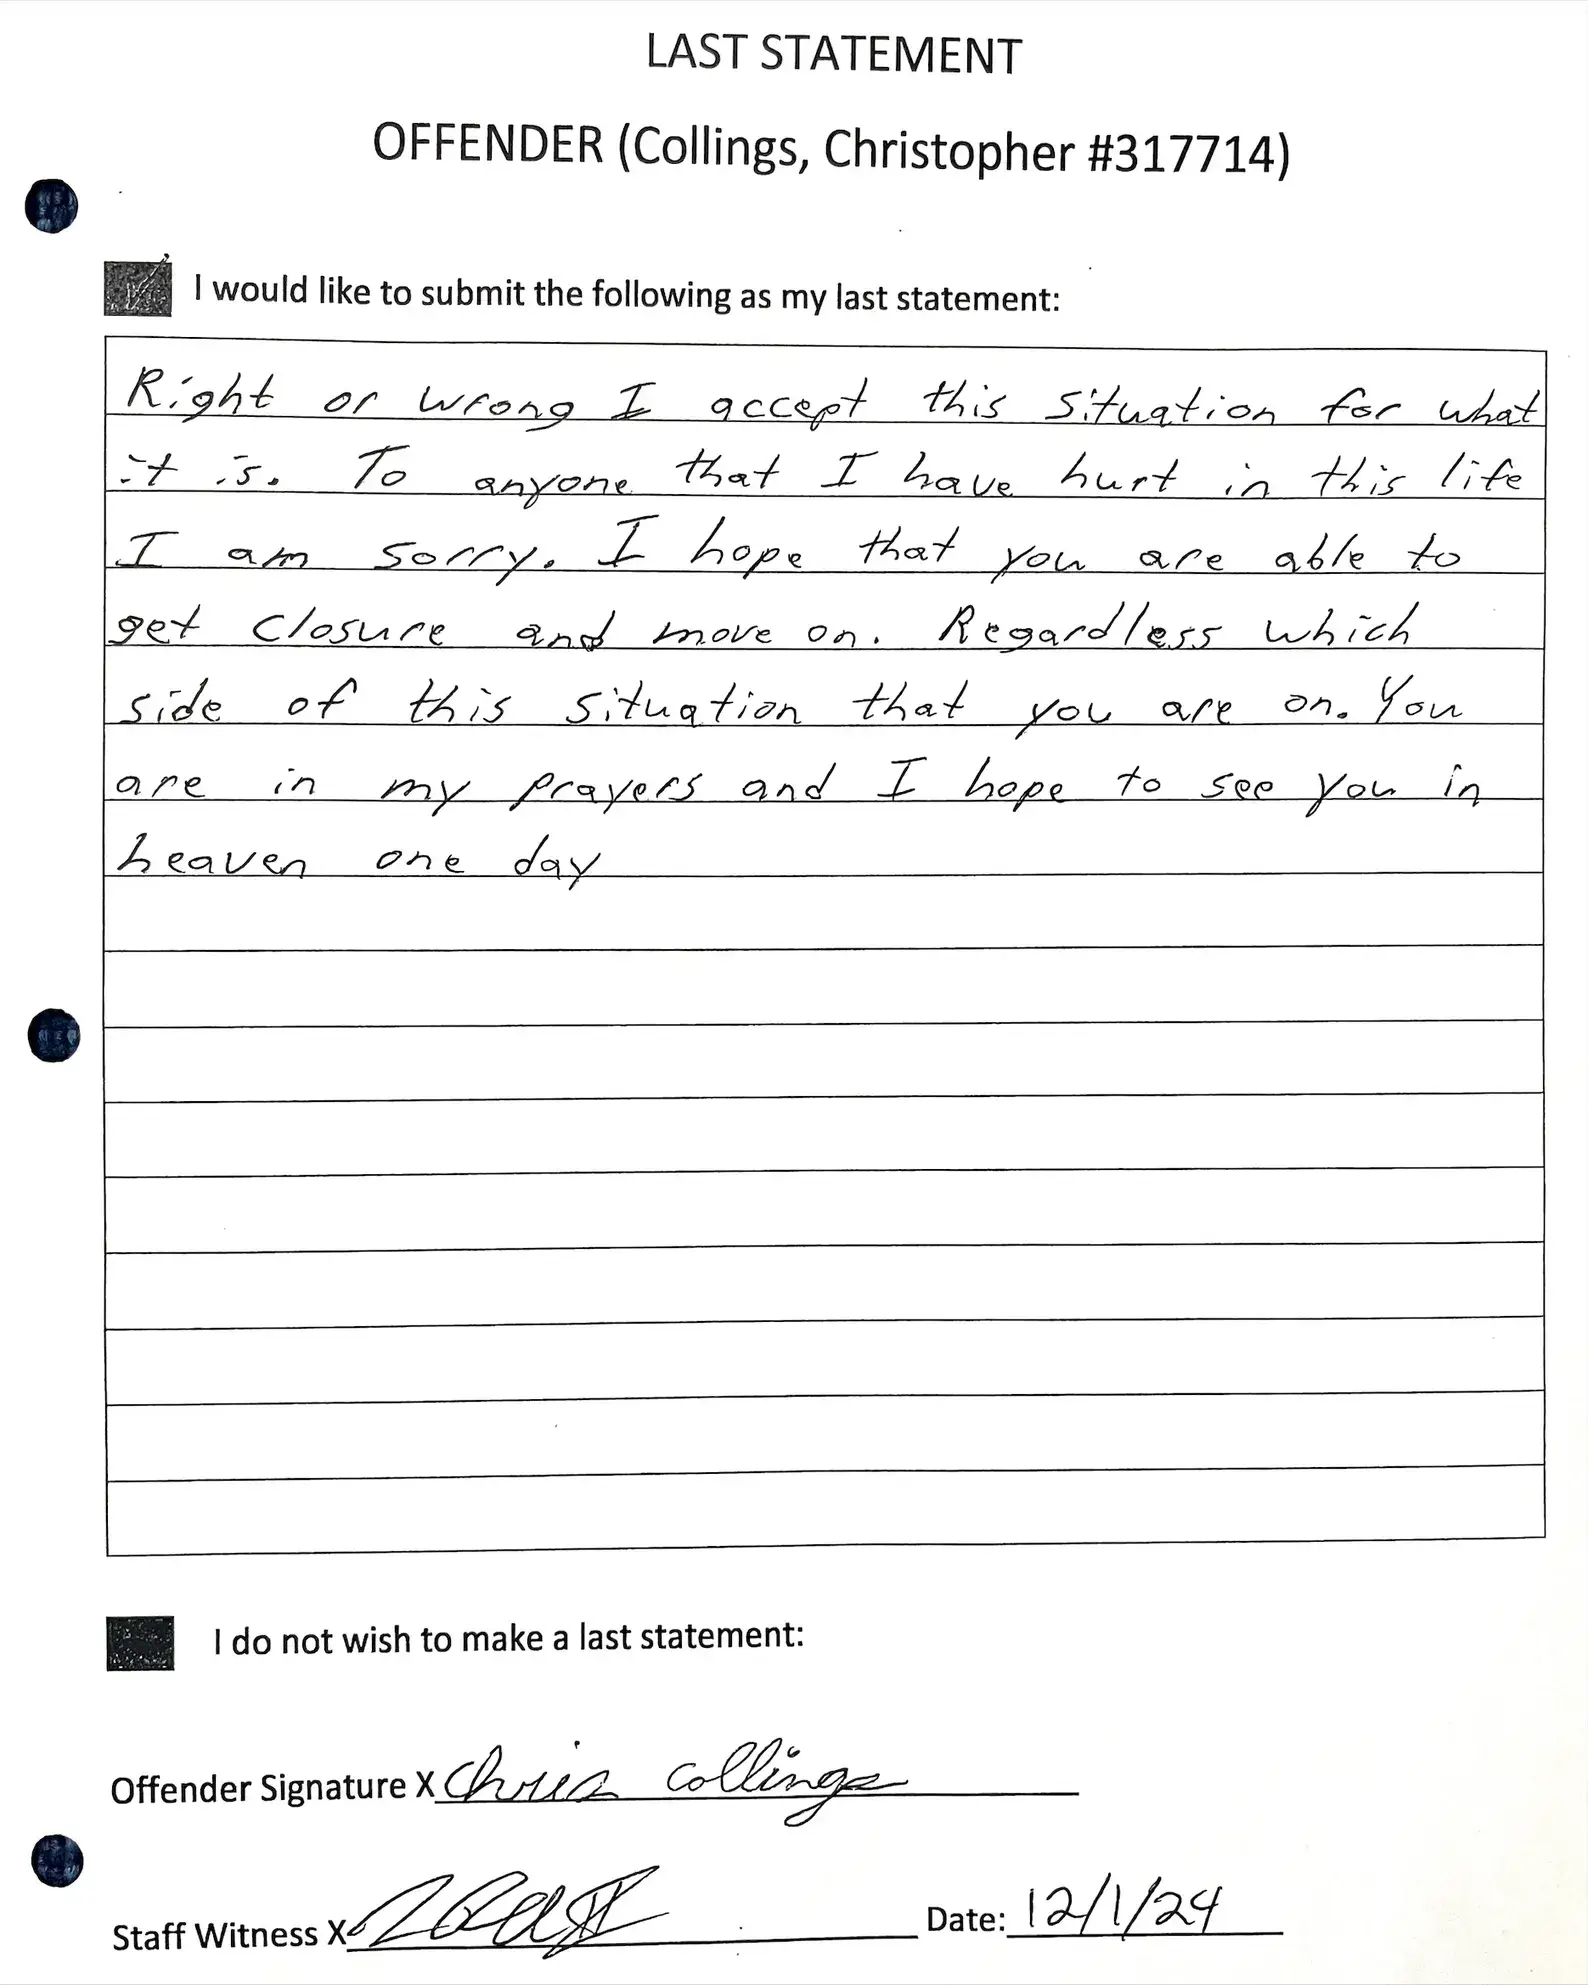 LAST STATEMENT
OFFENDER (Collings, Christopher #317714)
I would like to submit the following as my last statement:
Right or wrong I accept this situation for what
it is. To anyone that I have hurt in this life
I am sorry. I hope that you are able to
get closure and move on. Regardless which
side of this situation that you are on. You
are in my prayers and I hope to see you in
heaven one day
I do not wish to make a last statement:
Offender Signature X Chris Collings
Staff Witness X
Date: 12/1/24